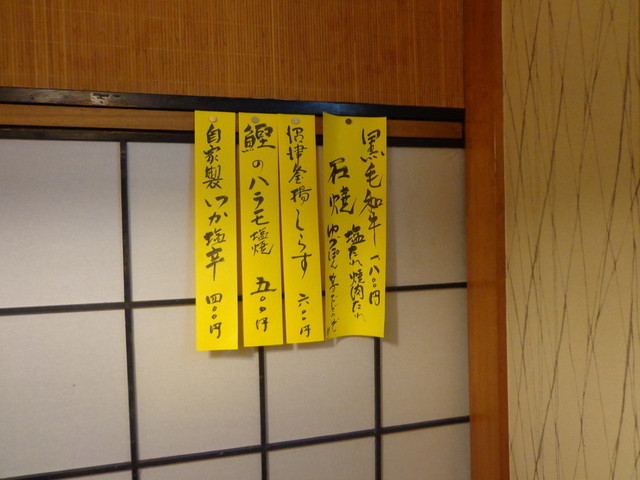 黒毛和牛
石焼 塩たれ 焼肉たれ
沼津釜揚しらす 六〇〇円
鰹のハラモ塩焼 五〇〇円
自家製いか塩辛 四〇〇円